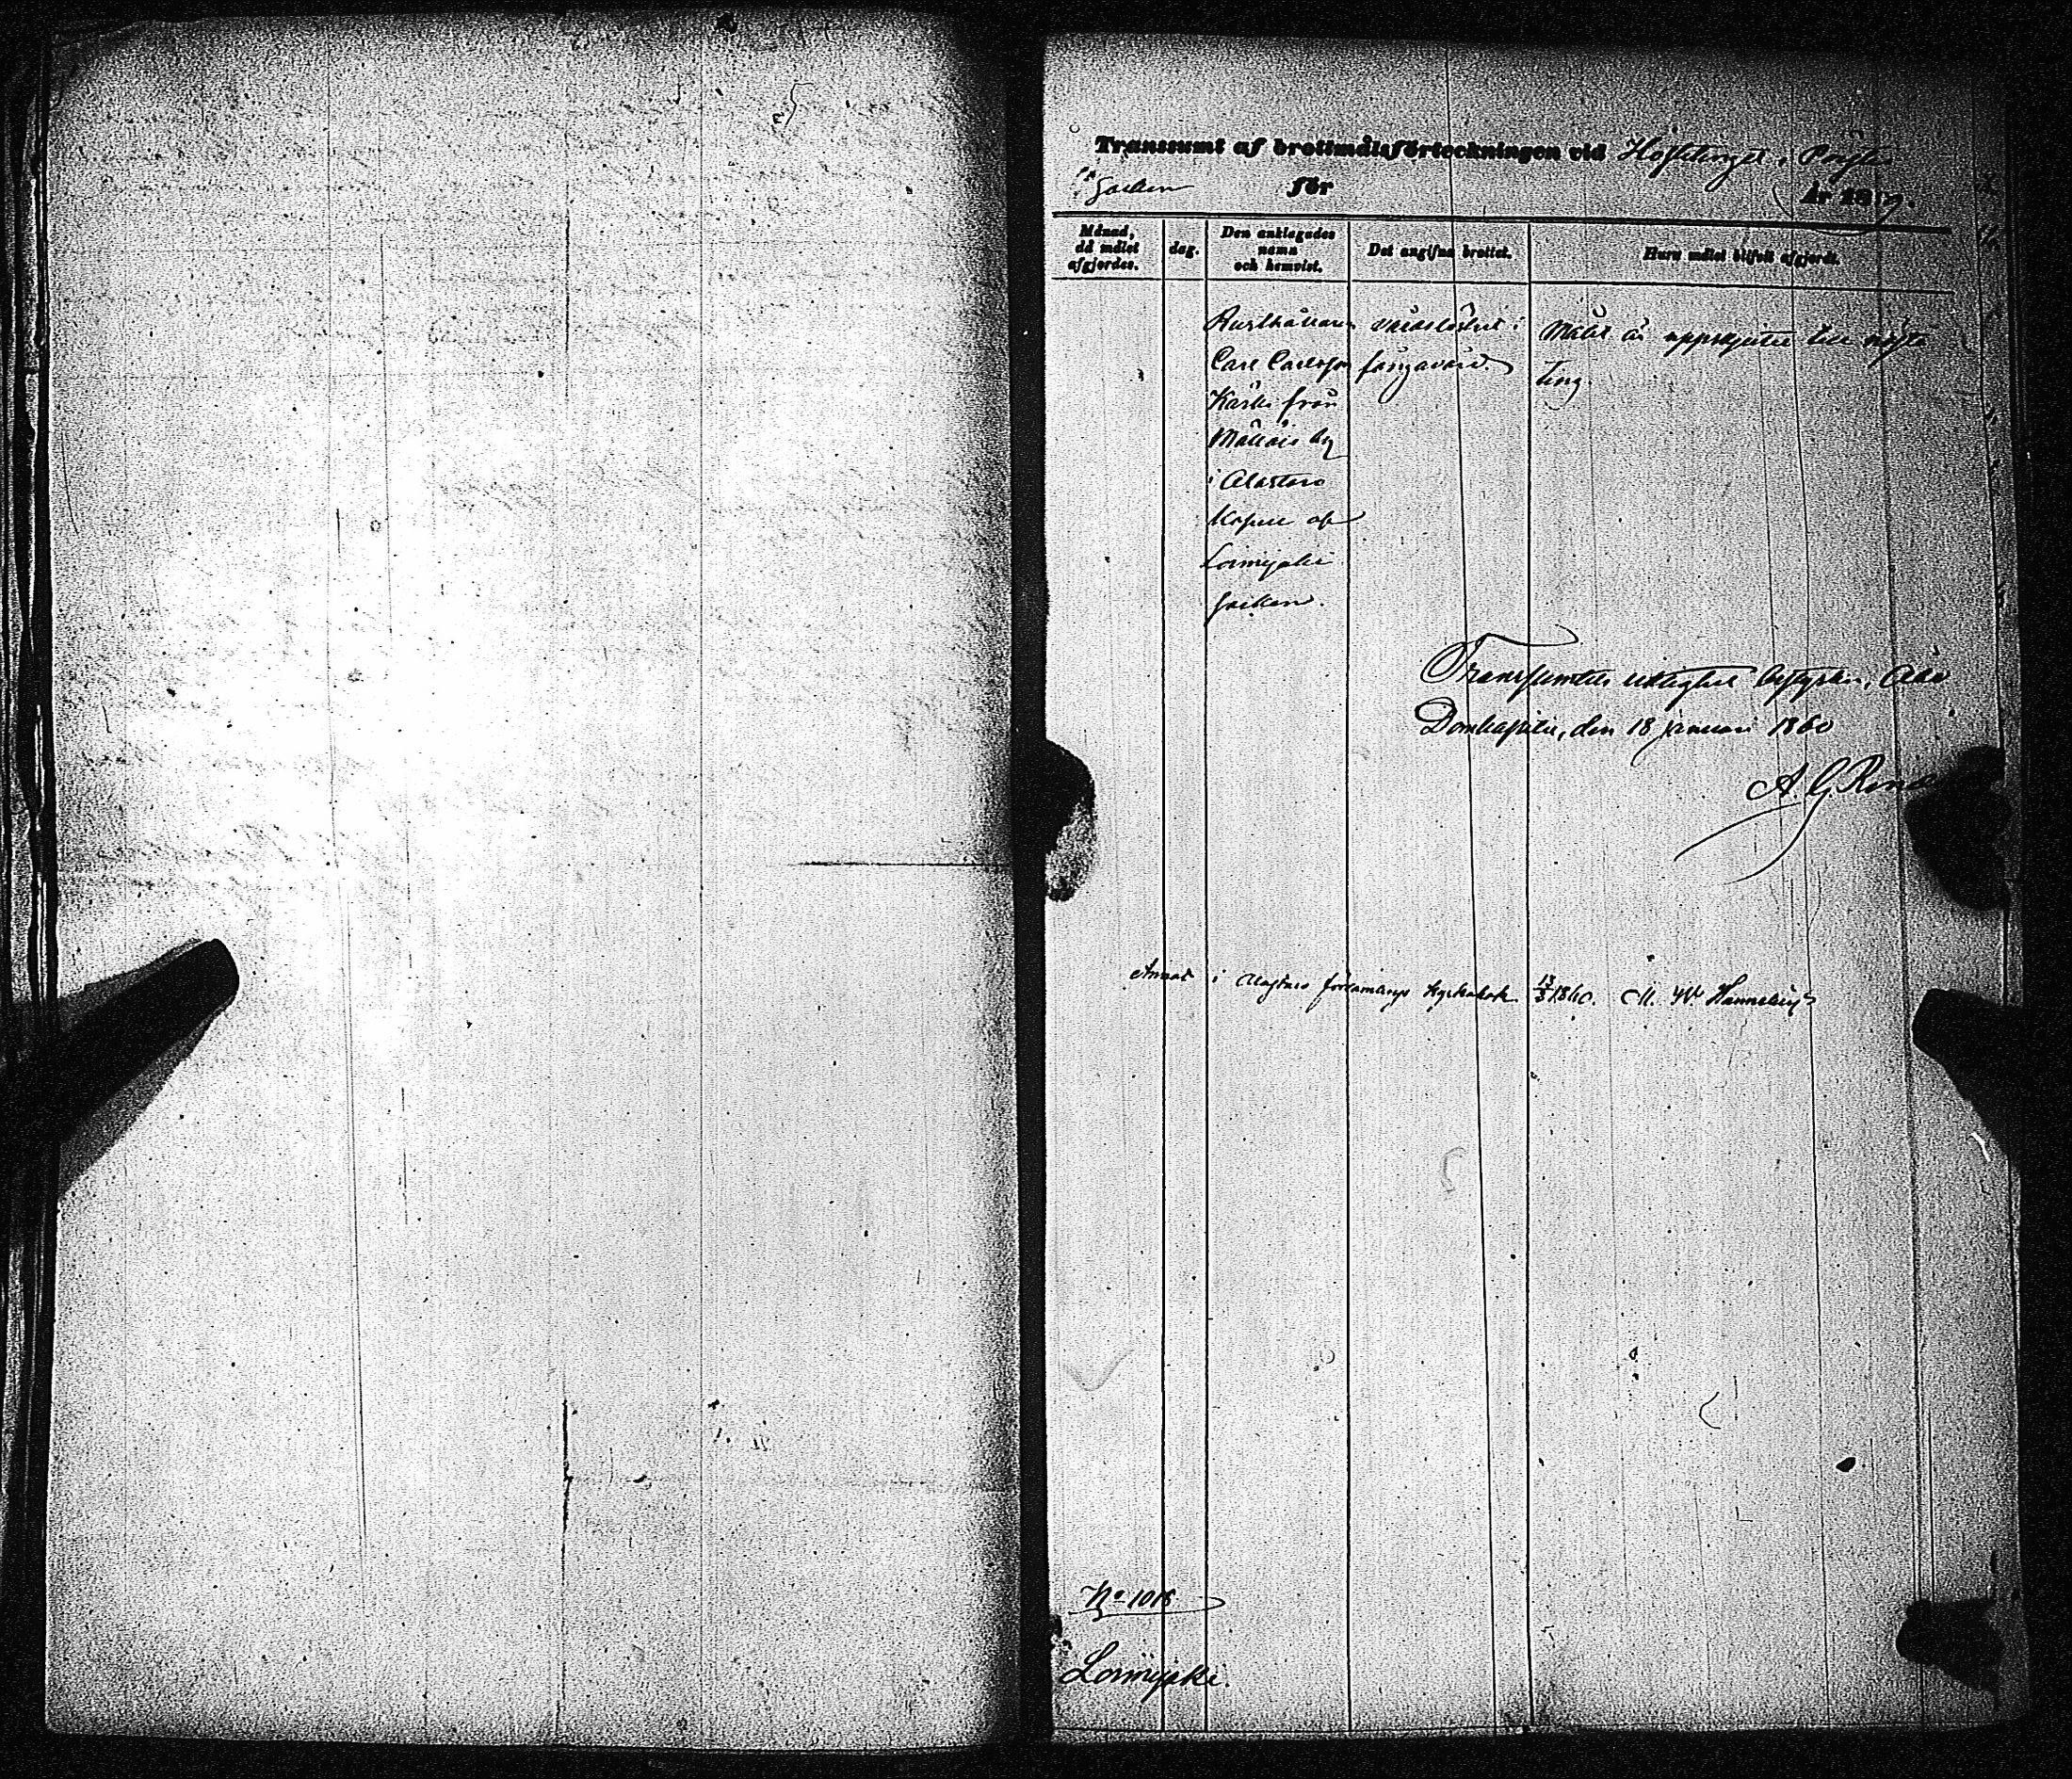 Transsumt af brottmålsförteckningen vid Höstetinget i Pöytis
Socken för år 1859.
Månad, då målet afgjordes.
dag.
Den anklagades namn och hemvist.
Det angifna brottet.
Huru målet blifvit afgjordt.
Rusthållaren
Carl Carlsson
Kärki från
Mällois by
i Alastaro
Kapell af
Loimijoki
socken.
vårdslöshet i
fångavård.
Målet är uppskjutet till nästa
Ting.
Transsumtets riktighet bestyrker, Åbo
Domkapitel, den 18 januari 1860
A. G.
Annot. i Alastaro församlings Kyrkobok 13/3 1860. M. W.
No 1018
Loimijoki.